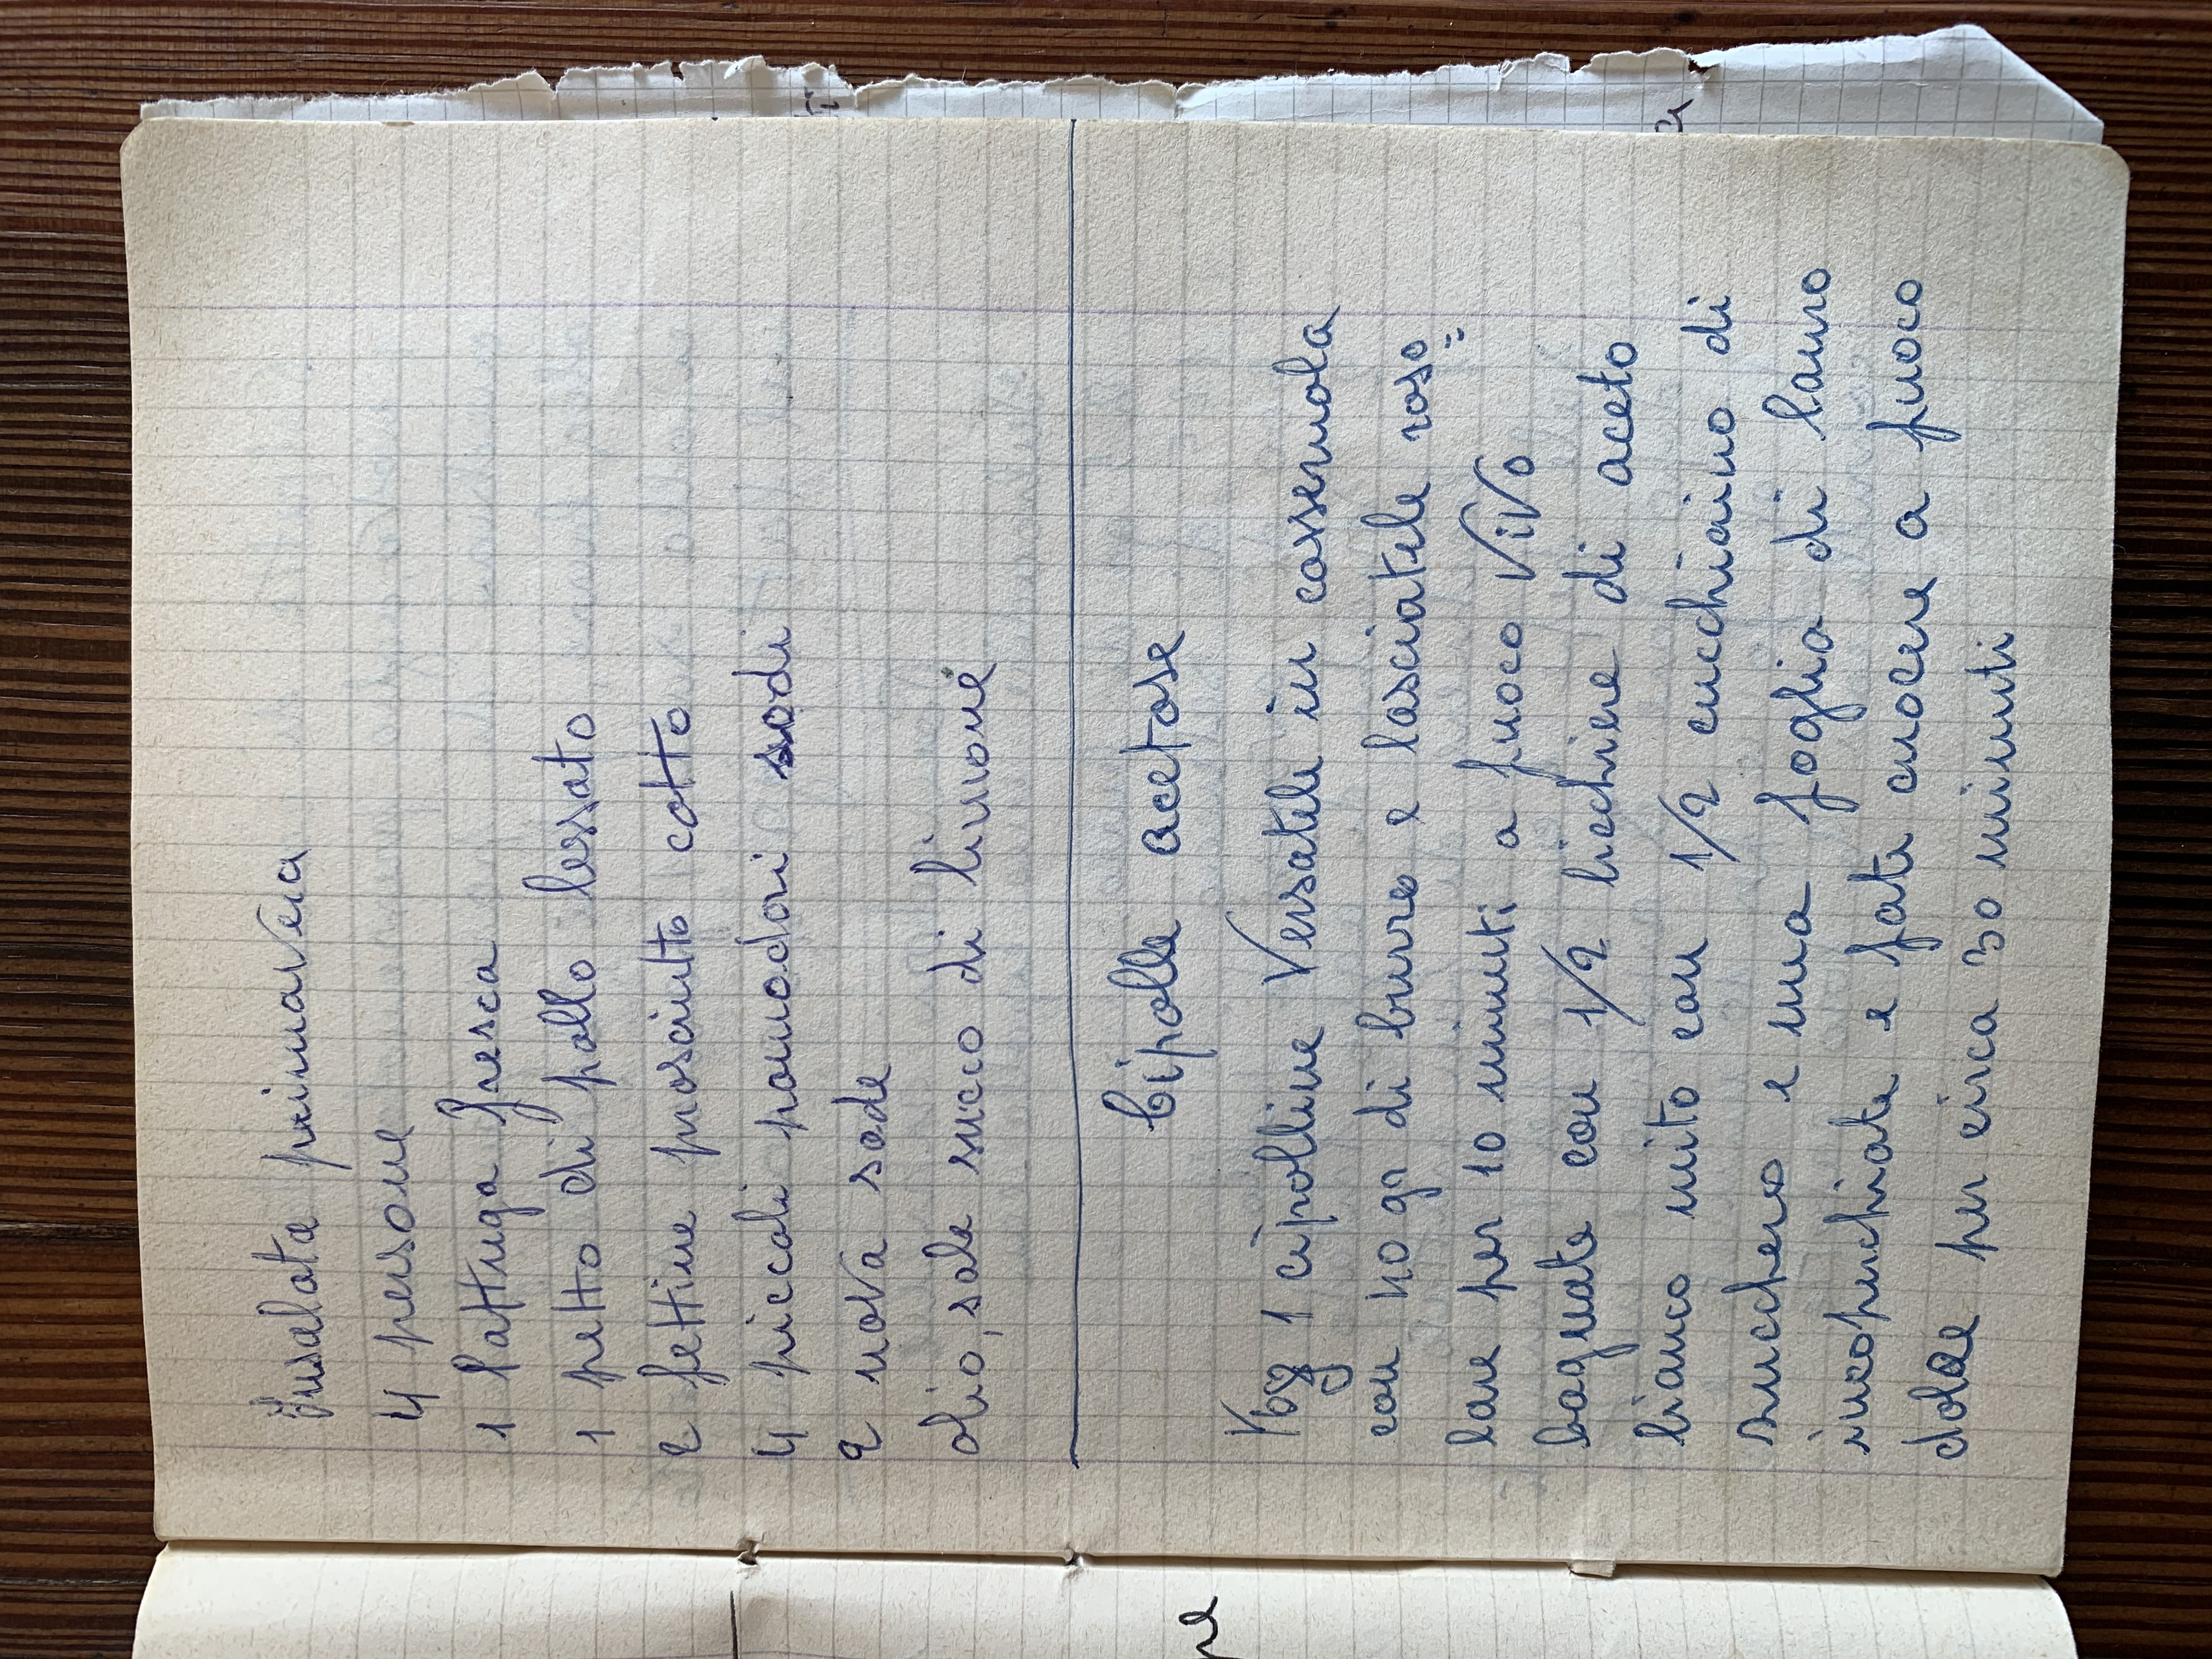 Insalata primavera
4 persone
1 lattuga fresca
1 petto di pollo lessato
2 fettine prosciutto cotto
4 piccoli pomodori sodi
2 uova sode
olio, sale succo di limone
Cipolle acetose
Kg 1 cipolline Versatele in casseruola
con 40 gr di burro e lasciatele roso=
lare per 10 minuti a fuoco ViVo
bagnate con 1/2 bicchiere di aceto
bianco mito con 1/2 cucchiaino di
zucchero e una foglia di lauro
incoperchiate e fate cuocere a fuoco
dolce per circa 30 minuti